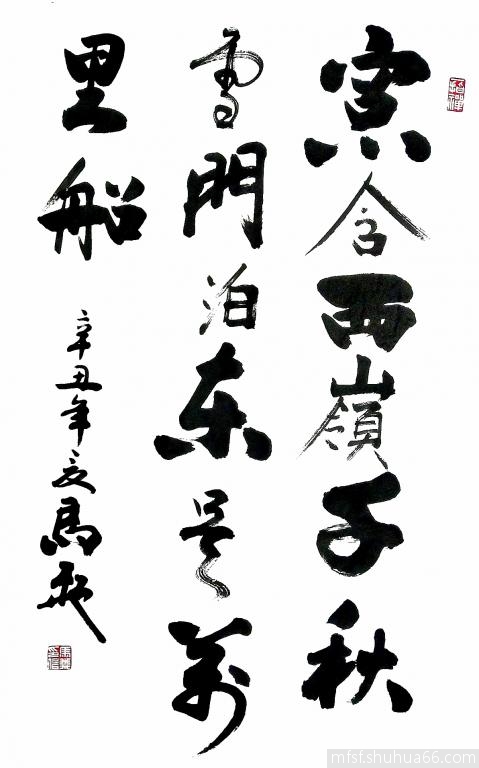 窗含西嶺千秋
雪門泊东吴萬
里船
辛丑年夏馬
mfsf.shuhua66.com